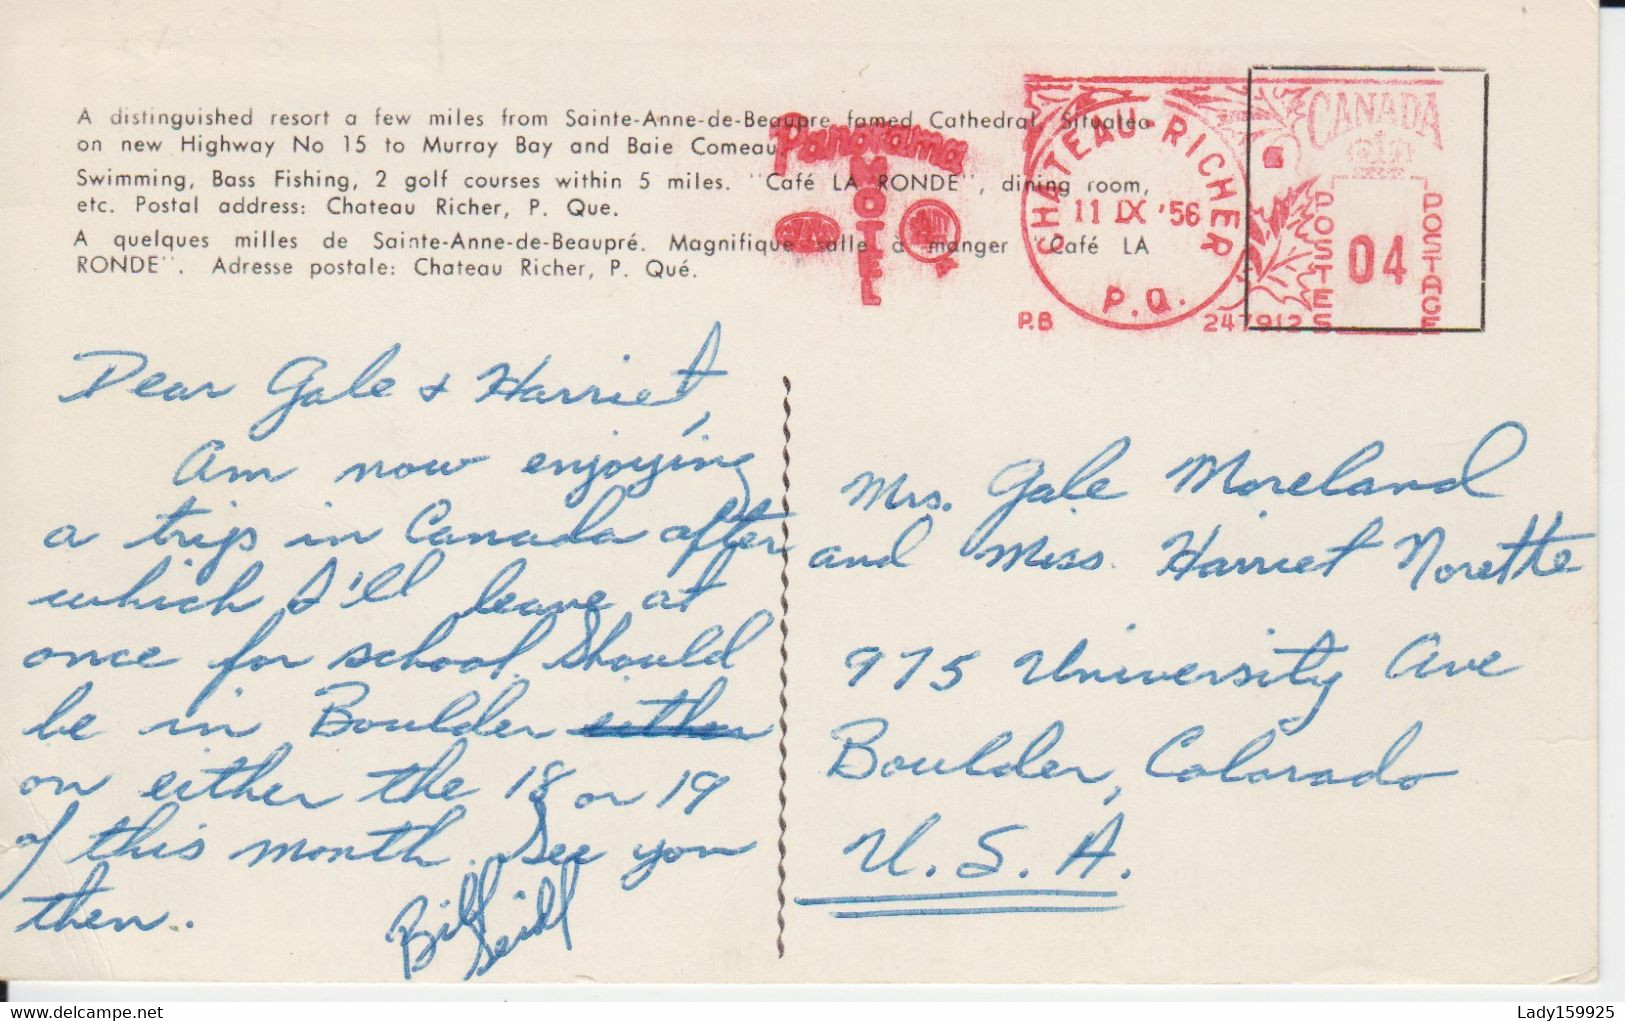 A distinguished resort a few miles from Sainte-Anne-de-Beaupre famed Cathedral. Situated
on new Highway No 15 to Murray Bay and Baie Comeau.
Swimming, Bass Fishing, 2 golf courses within 5 miles. "Café LA RONDE", dining room,
etc. Postal address: Chateau Richer, P. Que.
A quelques milles de Sainte-Anne-de-Beaupré. Magnifique salle à manger "Café LA
RONDE". Adresse postale: Chateau Richer, P. Qué.
Panorama
MOTEL
CHATEAU-RICHER
11 IX '56
P.Q.
P.B 247912
CANADA
POSTES
04
POSTAGE
Dear Gale & Harriet,
Am now enjoying
a trip in Canada after
which I'll leave at
once for school. Should
be in Boulder either
on either the 18 or 19
of this month. See you
then.
Bill Seidl
Mrs. Gale Moreland
and Miss. Harriet Norette
975 University Ave
Boulder, Colorado
U.S.A.
Lady159925